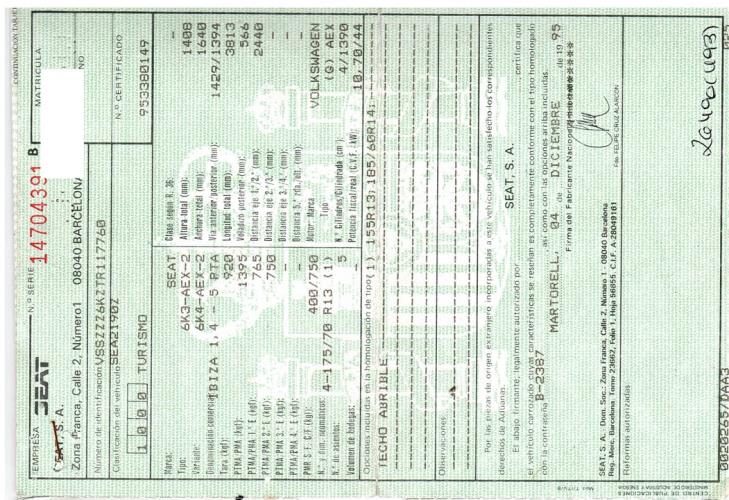 CONTINUACION TARJETA
EMPRESA SEAT
N.º SERIE 14704391 B
MATRICULA
SEAT, S. A.
Zona Franca, Calle 2, Número 1 08040 BARCELONA
NO
Número de identificación VSSZZZ6KZTR117760
N.º CERTIFICADO
Clasificación del vehículo SEA2190Z
953380149
1000 TURISMO
Marca: SEAT
Tipo: 6K3-AEX-2
Variante: 6K4-AEX-2
Denominación comercial: IBIZA 1,4 - 5 PTA
Tara (kgf): 920
PTMA/PMA (kgf): 1395
PTMA/PMA 1.ª E (kgf): 765
PTMA/PMA 2.ª E (kgf): 750
PTMA/PMA 3.ª E (kgf): -
PTMA/PMA 4.ª E (kgf): -
PMR S.F. C/F (kgf): 400/750
N.º y dim. neumáticos: 4-175/70 R13 (1)
N.º de asientos: 5
Volumen de bodegas: -
Clase según R. 36: -
Altura total (mm): 1408
Anchura total (mm): 1640
Vía anterior/posterior (mm): 1429/1394
Longitud total (mm): 3813
Voladizo posterior (mm): 566
Distancia eje 1.º/2.º (mm): 2440
Distancia eje 2.º/3.º (mm): -
Distancia eje 3.º/4.º (mm): -
Distancia 5.ª rda. últ. (mm): -
Motor Marca VOLKSWAGEN
Tipo (G) AEX
N.º Cilindros/Cilindrada (cm³): 4/1390
Potencia fiscal/real (C.V.F./kW): 10,70/44
Opciones incluidas en la homologación de tipo (1) 155R13; 185/60R14;
TECHO ABRIBLE
Observaciones:
Por las piezas de origen extranjero incorporadas a este vehículo se han satisfecho los correspondientes
derechos de Aduanas.
SEAT, S. A.
El abajo firmante, legalmente autorizado por certifica que
el vehículo carrozado cuyas características se reseñan es completamente conforme con el tipo homologado
con la contraseña B-2387 así como con las opciones arriba incluidas.
MARTORELL, 04 de DICIEMBRE de 1995
Firma del Fabricante Nacional
Fdo. FELIPE CRUZ ALARCON
SEAT, S. A. Dom. Soc.: Zona Franca, Calle 2, Número 1 - 08040 Barcelona
Reg. Merc. Barcelona, Tomo 23662, Folio 1, Hoja 56855 C.I.F. A-28049161
Reformas autorizadas
0020265/DAA3
CENTRO DE PUBLICACIONES
MINISTERIO DE INDUSTRIA Y ENERGIA